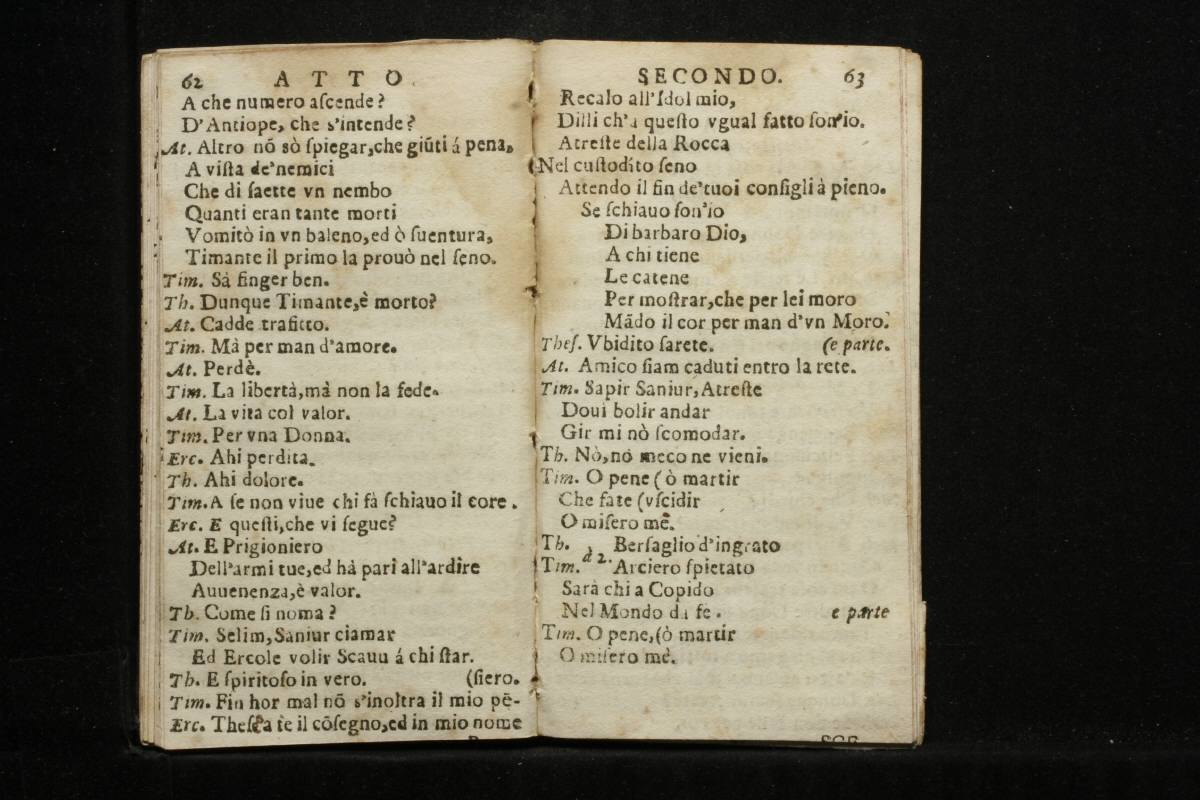 62 ATTO.
A che numero aſcende?
D'Antiope, che s'intende?
At. Altro nõ sò ſpiegar,che giũti á pena,
A viſta de'nemici
Che di ſaette vn nembo
Quanti eran tante morti
Vomitò in vn baleno,ed ò ſuentura,
Timante il primo la prouò nel ſeno.
Tim. Sà finger ben.
Th. Dunque Timante,è morto?
At. Cadde trafitto.
Tim. Mà per man d'amore.
At. Perdè.
Tim. La libertà,mà non la fede.
At. La vita col valor.
Tim. Per vna Donna.
Erc. Ahi perdita.
Th. Ahi dolore.
Tim. A ſe non viue chi fà ſchiauo il core.
Erc. E queſti,che vi ſegue?
At. E Prigioniero
Dell'armi tue,ed hà pari all'ardire
Auuenenza,è valor.
Th. Come ſi noma?
Tim. Selim,Saniur ciamar
Ed Ercole volir Scauu á chi ſtar.
Th. E ſpiritoſo in vero. (ſiero.
Tim. Fin hor mal nõ s'inoltra il mio pẽ-
Erc. Theſea te il cõſegno,ed in mio nome
SECONDO. 63
Recalo all'Idol mio,
Dilli ch'a queſto vgual fatto ſon'io.
Atreſte della Rocca
Nel cuſtodito ſeno
Attendo il fin de'tuoi conſigli à pieno.
Se ſchiauo ſon'io
Di barbaro Dio,
A chi tiene
Le catene
Per moſtrar,che per lei moro
Mãdo il cor per man d'vn Moro.
Theſ. Vbidito ſarete. (e parte.
At. Amico ſiam caduti entro la rete.
Tim. Sapir Saniur,Atreſte
Doui bolir andar
Gir mi nò ſcomodar.
Th. Nò,nò meco ne vieni.
Tim. O pene (ò martir
Che fate (vſcidir
O miſero mè.
Th. Berſaglio d'ingrato
à 2.
Tim. Arciero ſpietato
Sarà chi a Copido
Nel Mondo da fe. e parte
Tim. O pene,(ò martir
O miſero mè.